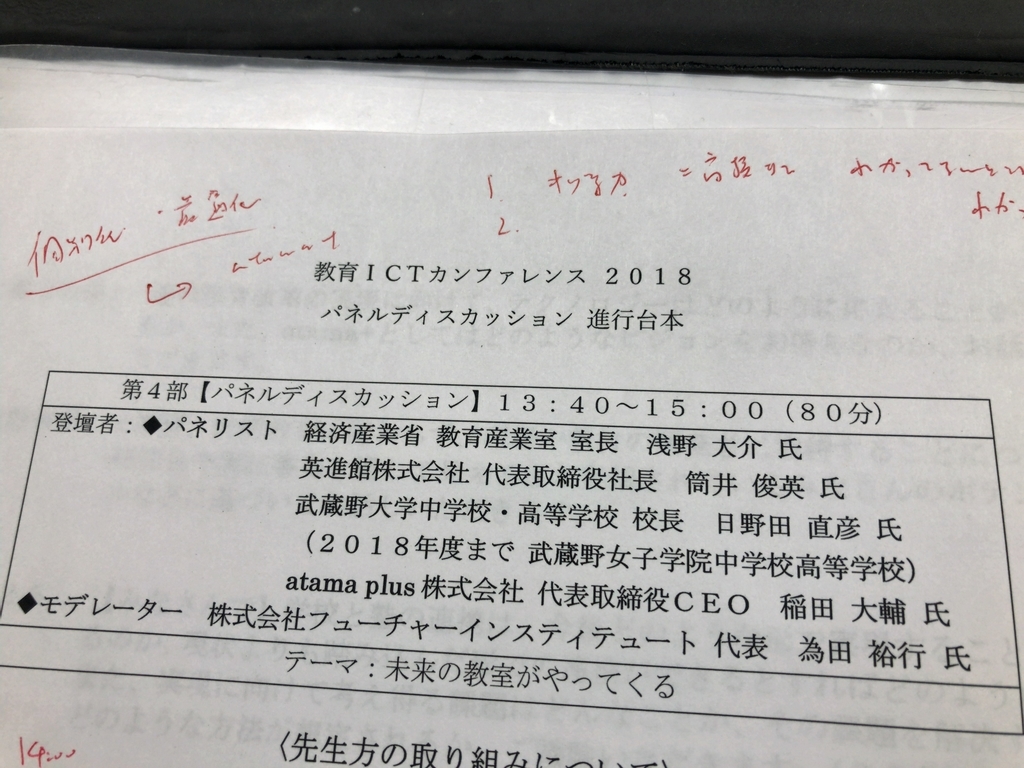 個別化・最適化
1.
2.
教育ICTカンファレンス 2018
パネルディスカッション 進行台本
第4部【パネルディスカッション】13:40～15:00(80分)
登壇者:◆パネリスト 経済産業省 教育産業室 室長 浅野 大介 氏
英進館株式会社 代表取締役社長 筒井 俊英 氏
武蔵野大学中学校・高等学校 校長 日野田 直彦 氏
(2018年度まで 武蔵野女子学院中学校高等学校)
atama plus 株式会社 代表取締役CEO 稲田 大輔 氏
◆モデレーター 株式会社フューチャーインスティテュート 代表 為田 裕行 氏
テーマ:未来の教室がやってくる
14:00
〈先生方の取り組みについて〉